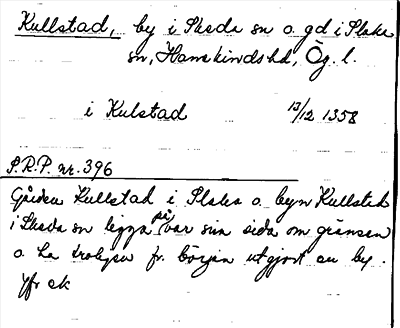 Kullstad, by i Skeda sn o. gd i Slaka
sn, Hanekindshd, Ög. l.
i Kulstad 13/12 1358
S.R.P. nr. 396
Gården Kullstad i Slaka o. byn Kullstad
i Skeda sn ligga på var sin sida om gränsen
o. ha troligen fr. början utgjort en by.
Yfr ek